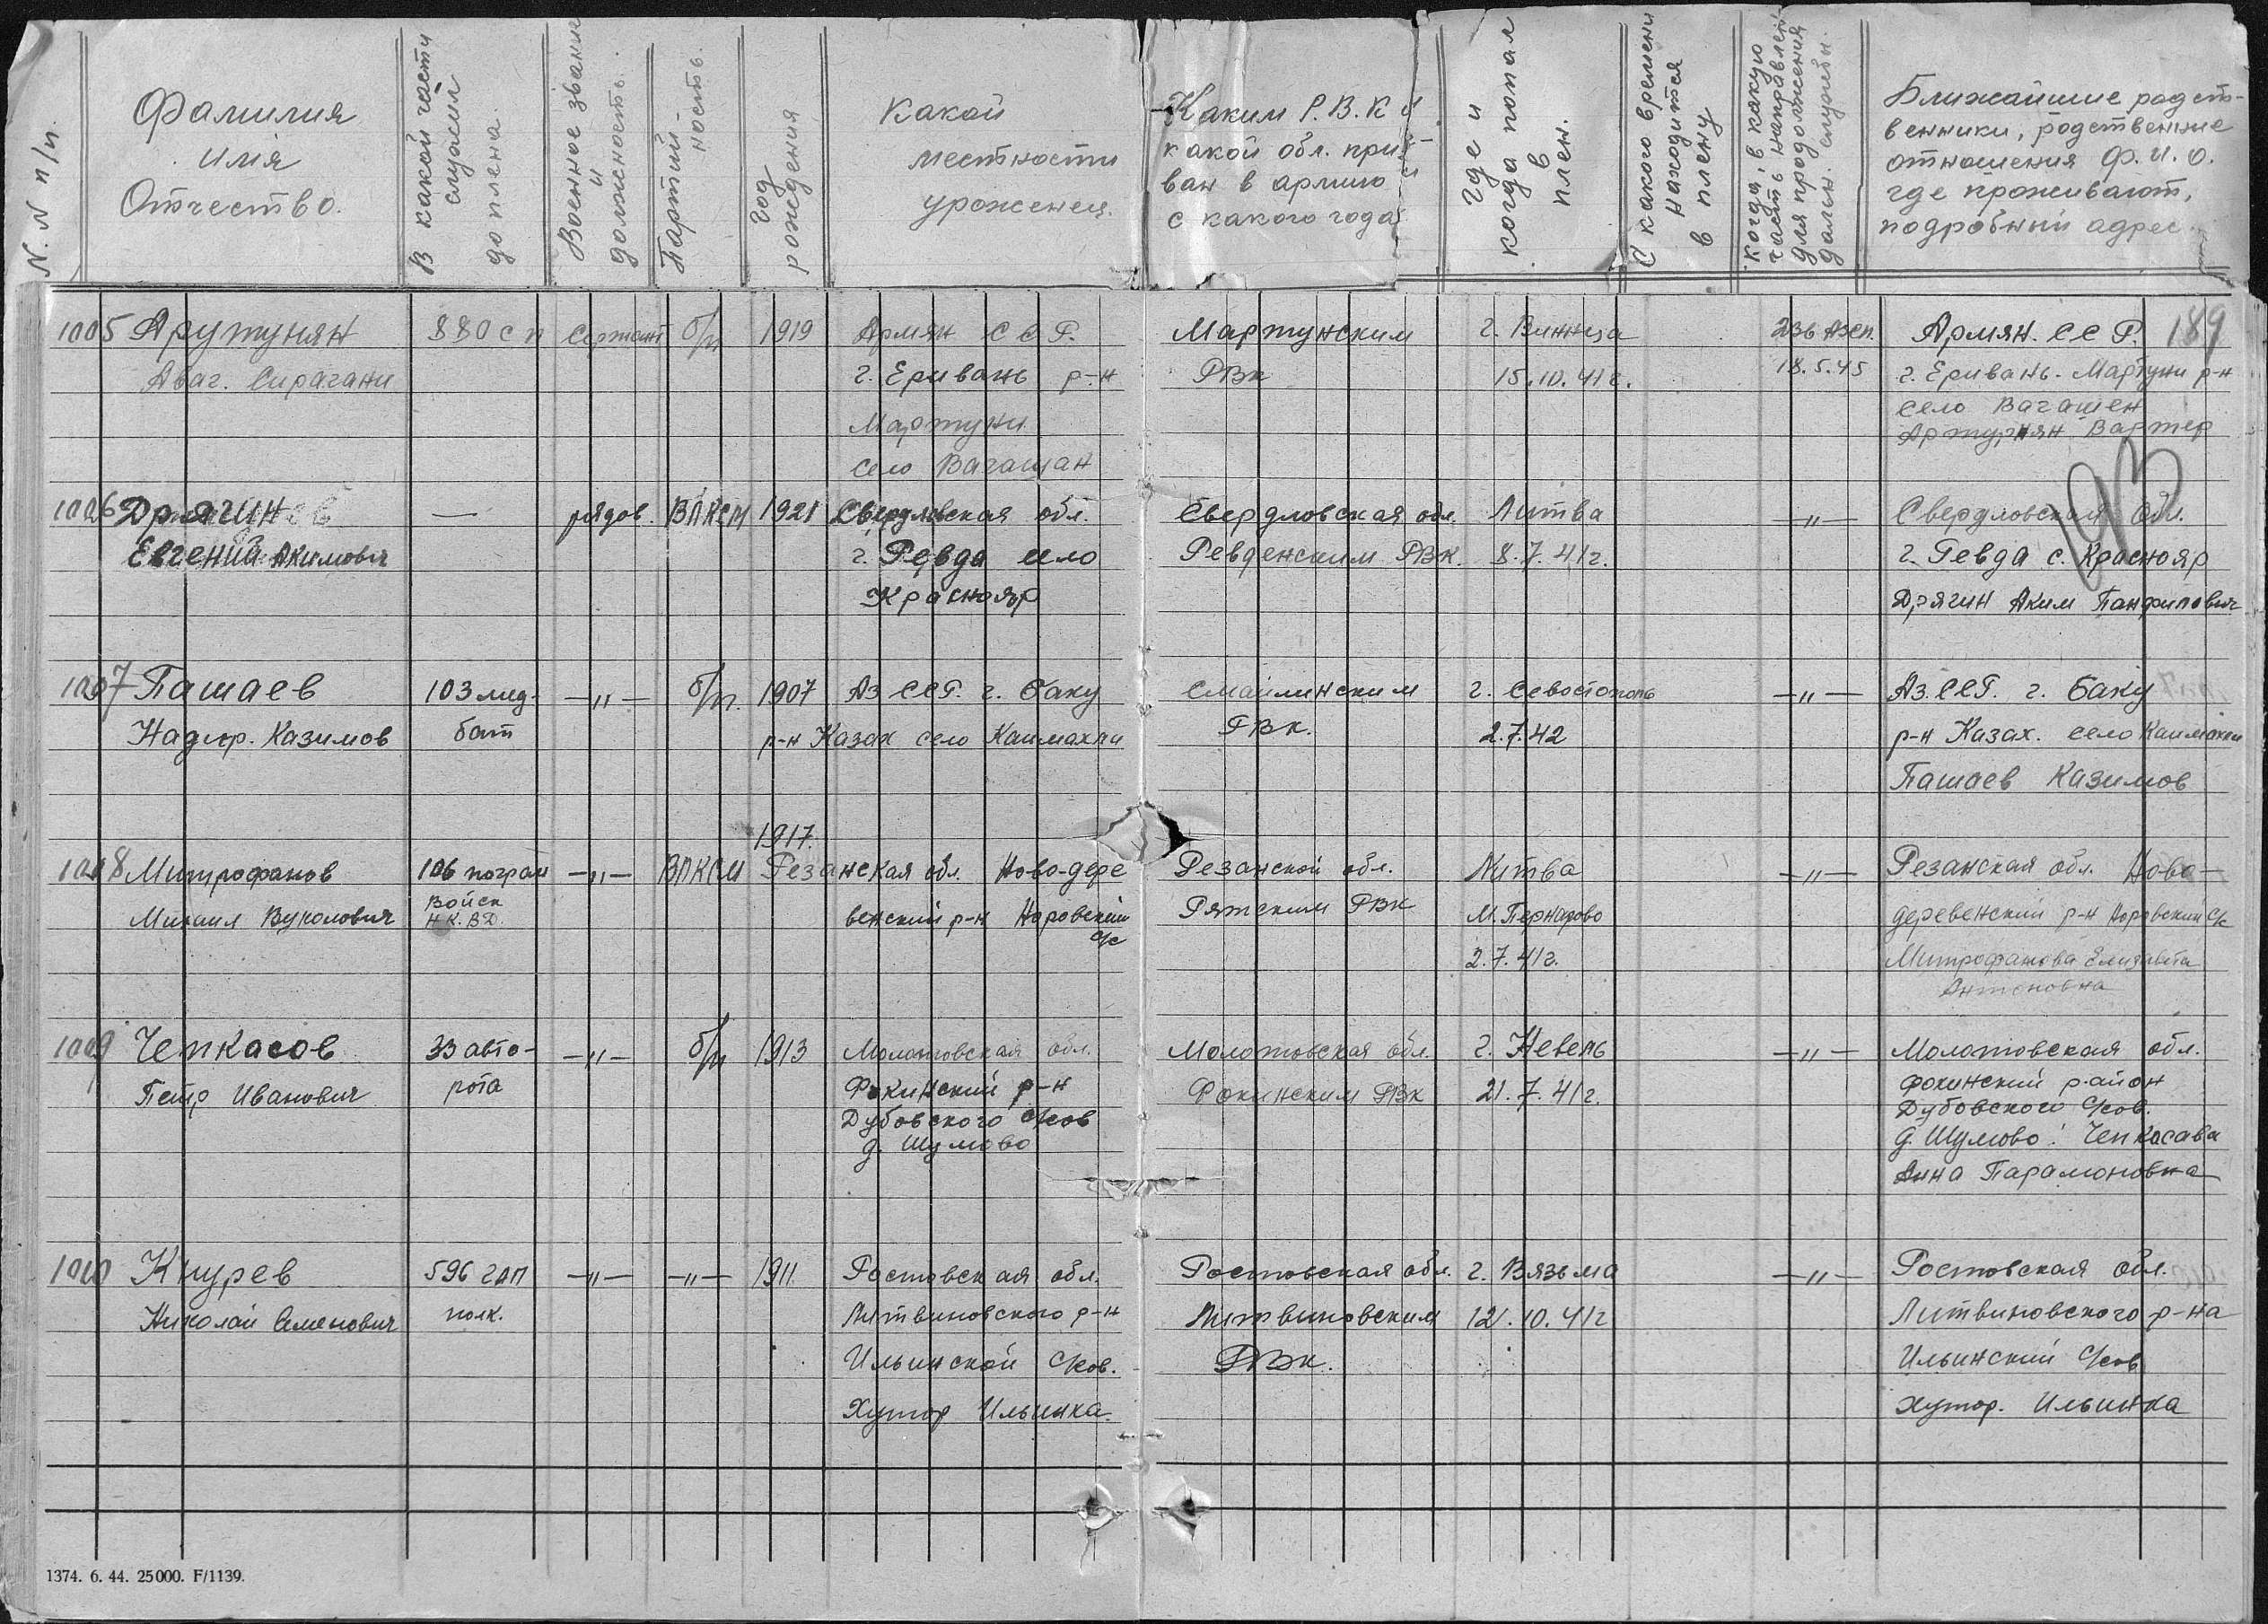 N. N п/п.
Фамилия
Имя
Отчество.
В какой части
служил
до плена.
Военное звание
и
должность.
Партий-
ность.
Год
рождения
Какой
местности
уроженец.
Каким Р.В.К и
какой обл. приз-
ван в армию и
с какого года
Где и
когда попал
в
плен.
С какого времени
находится
в плену
Когда, в какую
часть направлен
для продолжения
дальн. службы.
Ближайшие родст-
венники, родственные
отношения Ф.И.О.
где проживают,
подробный адрес.
189
1005 Арутунян 880 с п Сержант б/п 1919 Армян С С Р. Мартунским г. Винница 236 АЗСП. Армян. ССР.
Аваг. Сирагани г. Еривань р-н РВК 15.10.41г. 18.5.45 г. Еривань. Мартуни р-н
Мартуни село Вагашен
село Вагашан Артурнян Вартер
193
1006 Дрягин — рядов. ВЛКСМ 1921 Свердловская обл. Свердловская обл. Литва —"— Свердловская обл.
Евгений Акимович г. Ревда село Ревденским РВК. 8.7.41г. г. Ревда с. Краснояр
Краснояр Дрягин Аким Панфилович
1007 Пашаев 103 мед- —"— б/п. 1907 Аз ССР. г. Баку Смаилинским г. Севостополь —"— Аз. ССР. г. Баку
Надир. Казимов бат р-н Казах село Каимахли РВК. 2.7.42 р-н Казах. село
Пашаев Казимов
1917.
1008 Митрофанов 106 погран —"— ВЛКСМ Резанская обл. Ново-дере Резанской обл. Литва —"— Резанская обл. Ново-
Михаил Вуколович Войск Н.К.В.Д. венский р-н Норовский с/с Ряжским РВК М. деревенский р-н Норовский с/с
2.7.41г. Митрофанова Елизавета
Антоновна
1009 Чепкасов 33 авто- —"— б/п 1913 Молотовская обл. Молотовская обл. г. Невель —"— Молотовская обл.
Петр Иванович рота Фокинский р-н Фокинским РВК 21.7.41г. Фокинский район
Дубовского с/сов Дубовского с/сов.
д. Шумово д. Шумово. Чепкасава
Анна Парамоновна
1010 Кнурев 596 гап —"— —"— 1911. Ростовская обл. Ростовская обл. г. Вязьма —"— Ростовская обл.
Николай Семенович полк. Литвиновского р-н Литвиновским 12.10.41г Литвиновского р-на
Ильинской с/сов. РВК. Ильинский с/сов
Хутор Ильинка. хутор. Ильинка
1374. 6. 44. 25000. F/1139.